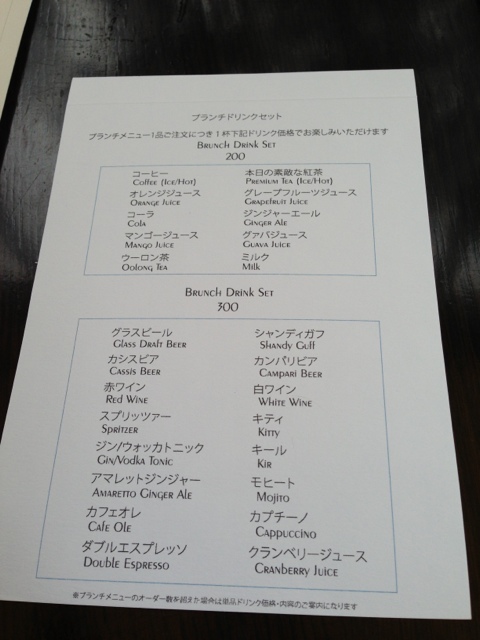 ブランチドリンクセット
ブランチメニュー1品ご注文につき1杯下記ドリンク価格でお楽しみいただけます
Brunch Drink Set
200
コーヒー
Coffee (Ice/Hot)
本日の素敵な紅茶
Premium Tea (Ice/Hot)
オレンジジュース
Orange Juice
グレープフルーツジュース
Grapefruit Juice
コーラ
Cola
ジンジャーエール
Ginger Ale
マンゴージュース
Mango Juice
グァバジュース
Guava Juice
ウーロン茶
Oolong Tea
ミルク
Milk
Brunch Drink Set
300
グラスビール
Glass Draft Beer
シャンディガフ
Shandy Guff
カシスビア
Cassis Beer
カンパリビア
Campari Beer
赤ワイン
Red Wine
白ワイン
White Wine
スプリッツァー
Spritzer
キティ
Kitty
ジン/ウォッカトニック
Gin/Vodka Tonic
キール
Kir
アマレットジンジャー
Amaretto Ginger Ale
モヒート
Mojito
カフェオレ
Cafe Ole
カプチーノ
Cappuccino
ダブルエスプレッソ
Double Espresso
クランベリージュース
Cranberry Juice
※ブランチメニューのオーダー数を超えた場合は単品ドリンク価格・内容のご案内になります